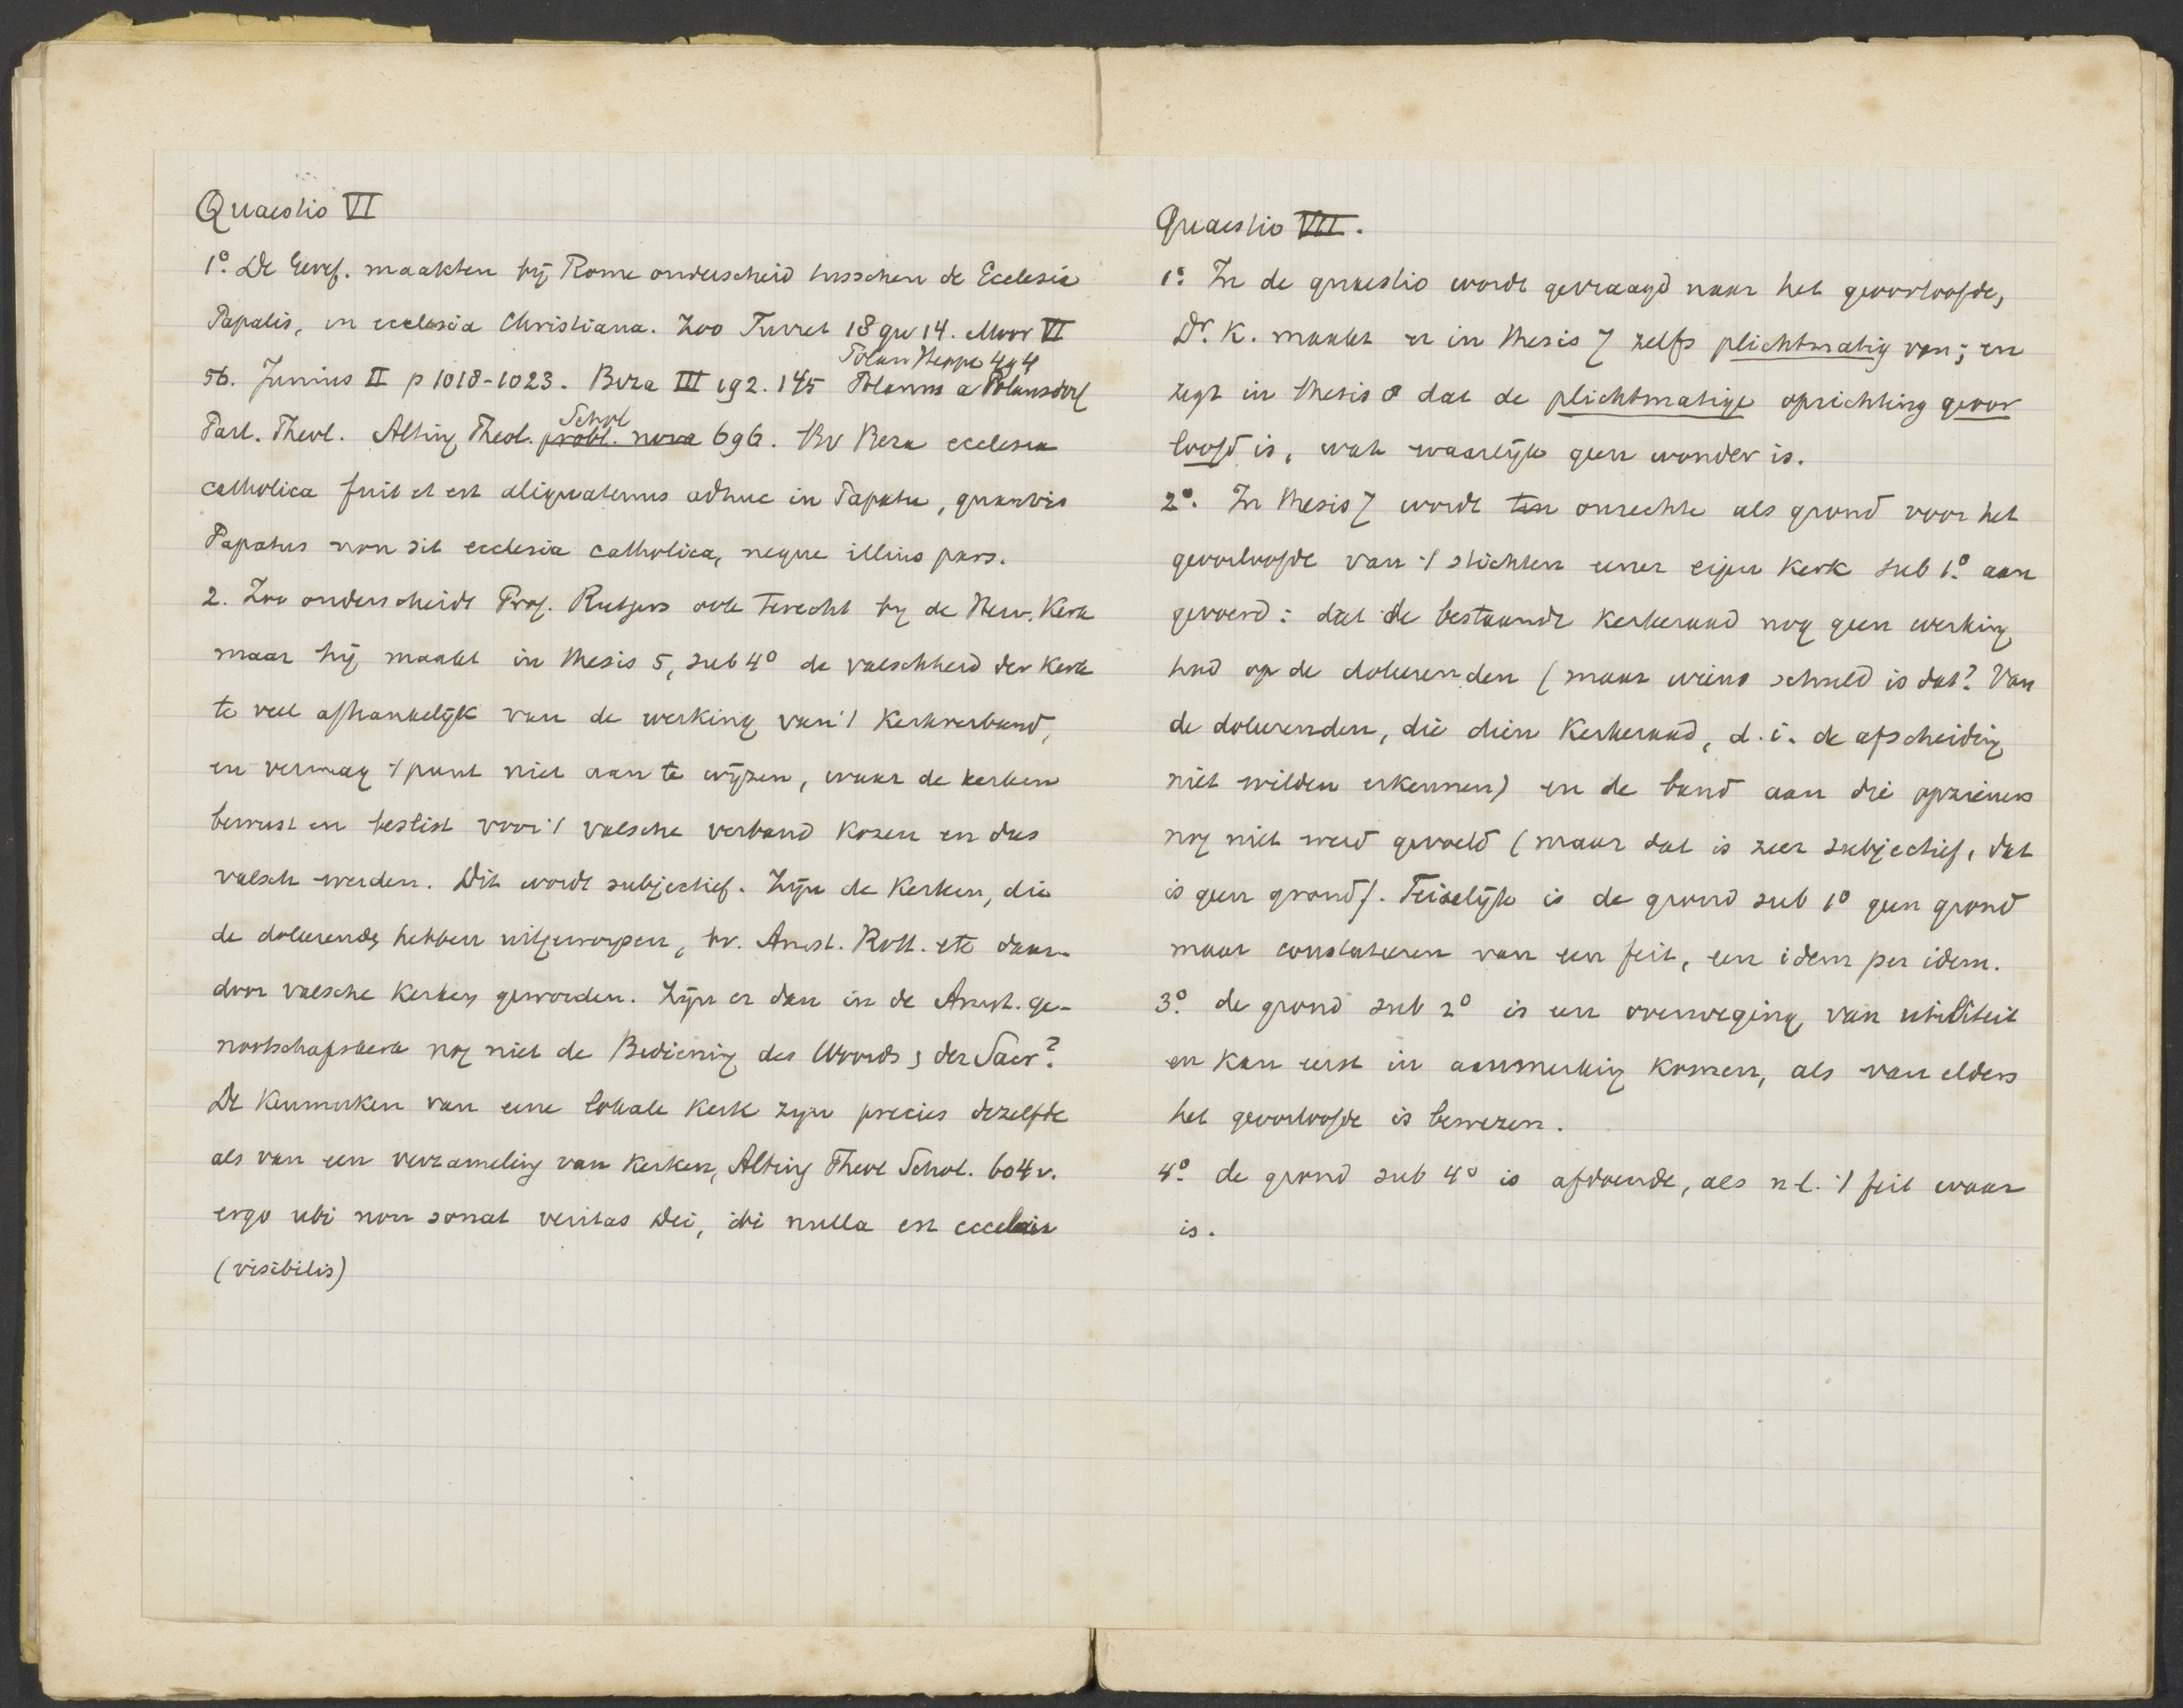 Quaestio VI
1º. De Geref. maakten bij Rome onderscheid tusschen de Ecclesia
Papalis, en ecclesia Christiana. Zoo Turret 18 qu 14. Moor VI
Polan Heppe 494
56. Junius II p 1018-1023. Beza III 192. 145 Polanus a Polansdorf
Schol
Part. Theol. Alting Theol. probl. nova 696. Bv Beza ecclesia
catholica fuit et est aliquatenus adhuc in Papatu, quamvis
Papatus non sit ecclesia catholica, neque illius pars.
2. Zoo onderscheidt Prof. Rutgers ook terecht by de Herv. Kerk
maar hij maakt in thesis 5, sub 4º de valschheid der Kerk
te veel afhankelijk van de werking van 't Kerkverband,
en vermag 't punt niet aan te wijzen, waar de kerken
bewust en beslist voor 't valsche verband kozen en dus
valsch werden. Dit wordt subjectief. Zijn de Kerken, die
de doleerende, hebben uitgeworpen, bv. Amst. Rott. etc daar-
door valsche Kerken geworden. Zijn er dan in de Amst. ge-
nootschapskerk nog niet de Bediening des Woords & der Sacr?
De Kenmerken van eene lokale Kerk zijn precies dezelfde
als van een verzameling van Kerken, Alting Theol Schol. 604 v.
ergo ubi non sonat veritas Dei, ibi nulla est ecclesia
(visibilis)
Quaestio VII.
1º. In de quaestio wordt gevraagd naar het geoorloofde,
Dr. K. maakt er in thesis 7 zelfs plichtmatig van; en
zegt in thesis 8 dat de plichtmatige oprichting geoor
loofd is, wat waarlijk geen wonder is.
2º. In thesis 7 wordt ten onrechte als grond voor het
geoorloofde van 't stichten eener eigen Kerk sub 1º. aan
gevoerd: dat de bestaande Kerkeraad nog geen werking
had op de doleerenden (maar wiens schuld is dat? Van
de doleerenden, die dien Kerkeraad, d. i. de afscheiding
niet wilden erkennen) en de band aan die opzieners
nog niet werd gevoeld (maar dat is zeer subjectief, dat
is geen grond). Feitelijk is de grond sub 1º geen grond
maar constateeren van een feit, een idem per idem.
3º. de grond sub 2º is een overweging van utiliteit
en kan eerst in aanmerking komen, als van elders
het geoorloofde is bewezen.
4º. de grond sub 4º is afdoende, als n.l. 't feit waar
is.